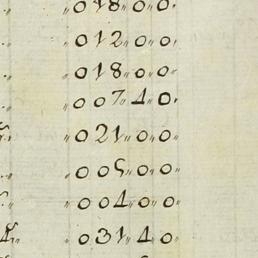 "018"0"0"
"012"0"0"
"018"0"0"
"007"4"0"
"021"0"0"
"005"0"0"
"004"0"0"
"031"4"0"